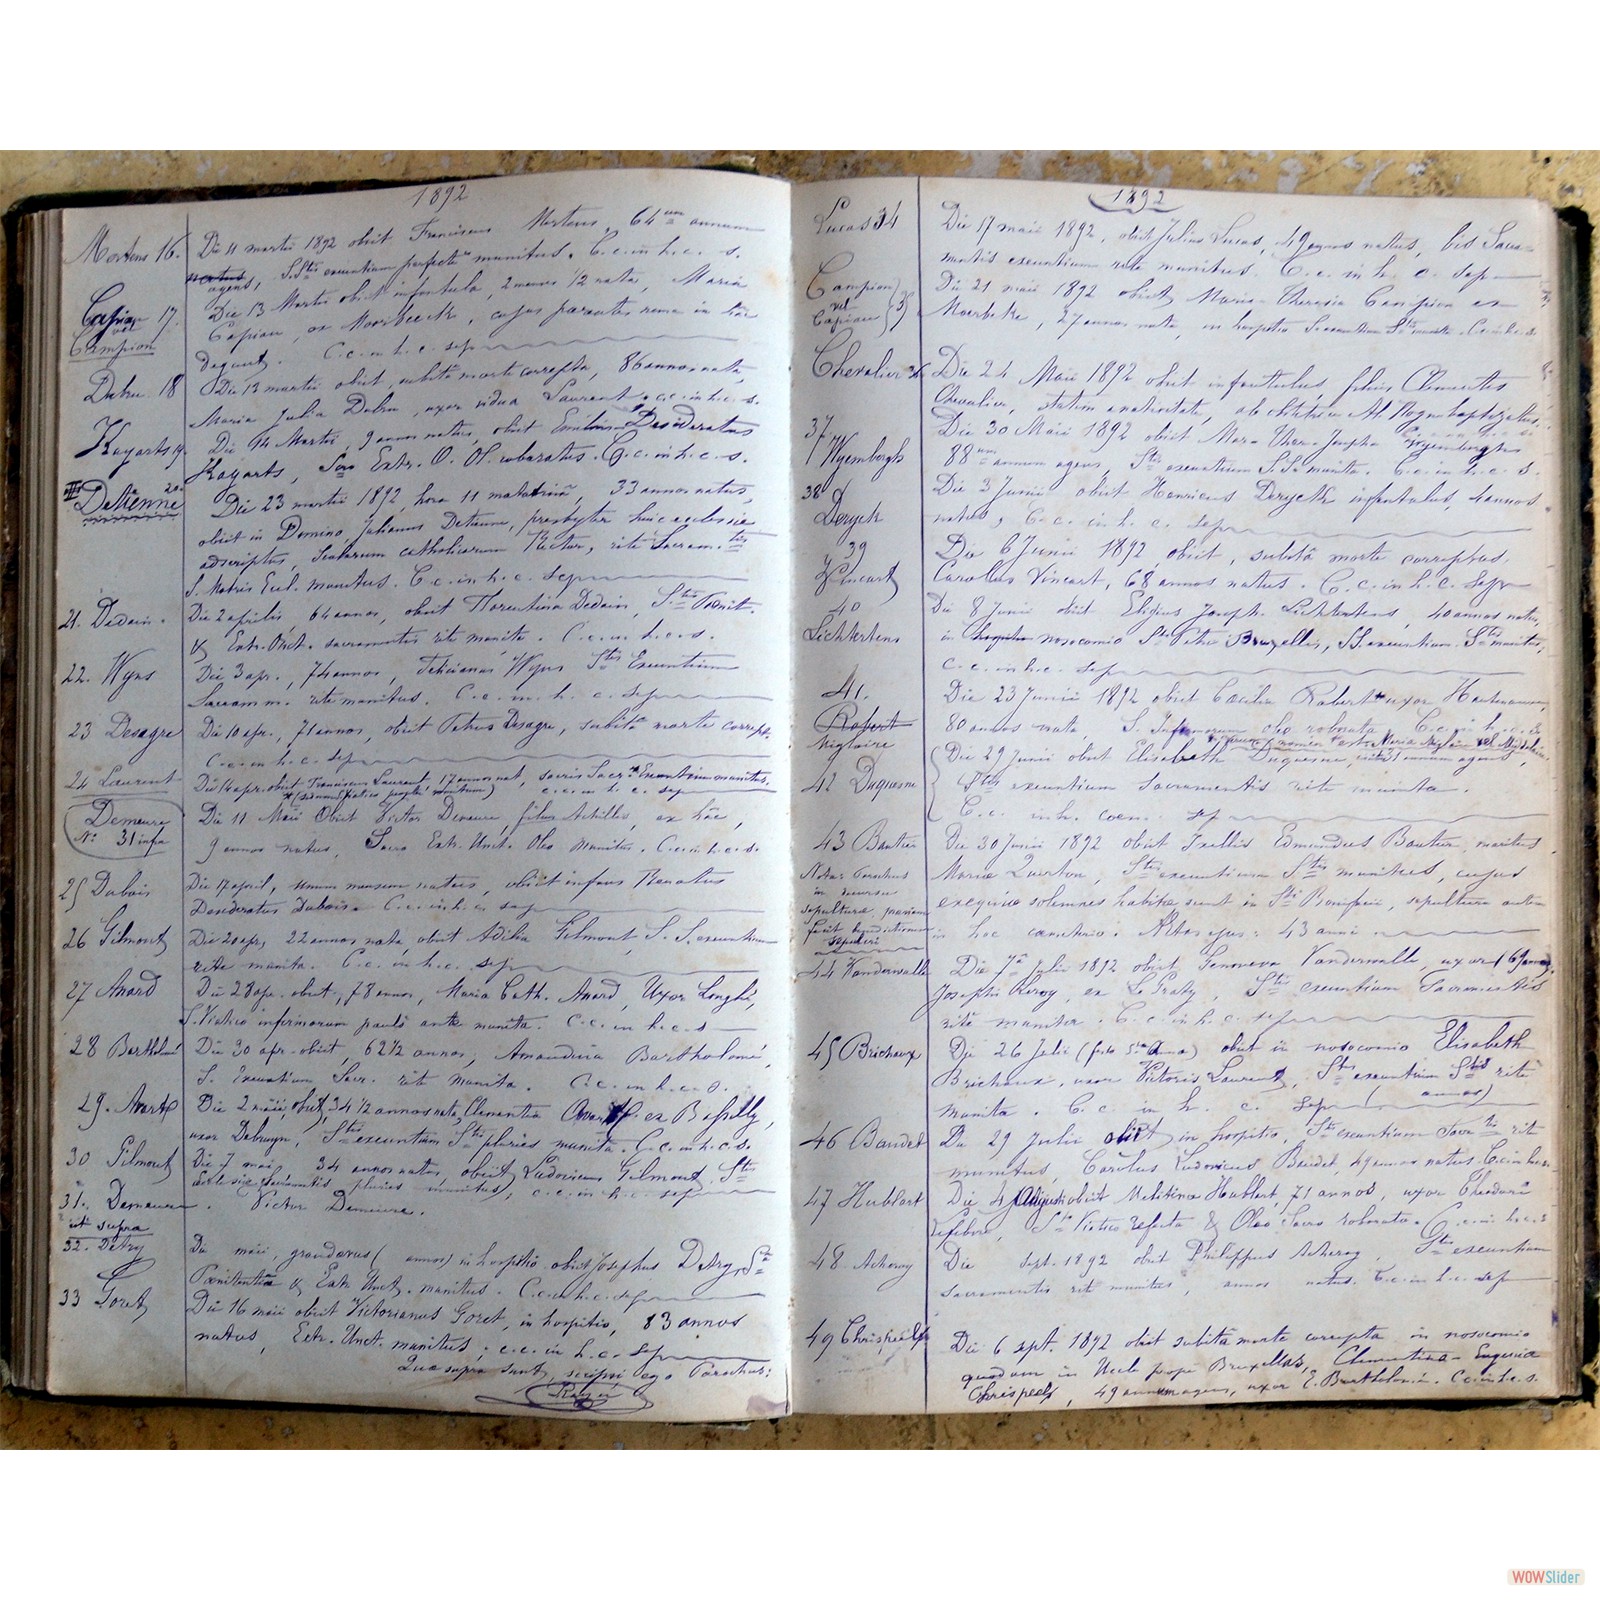 1892
Mertens 16. Die 4 martii 1892 obiit Franciscus Mertens, 64 um annum
natus agens, S.Stis exeuntium perfecte munitus. C.c. in h.c. s.
Capiau 17. Die 13 Martii obiit infantula, 2 menses 1/2 nata, Maria
vel Campion Capiau, ex Moerbecke, cujus parentes in hâc
degunt. C.c. in h.c. sep
Debru 18 Die 13 martii obiit, subitâ morte correpta, 86 annos nata,
Maria Julia Debru, uxor vidua Laurent. c.c. in h.c. s.
Kayarts 19. Die Martii, 9 annos natus, obiit Emilius Desideratus
Kayarts, Sacro Extr. O. Ol. roboratus. C.c. in h.c. s.
Detienne 20. Die 23 martii 1892, hora 11 matutinâ, 33 annos natus,
obiit in Domino Julianus Detienne, presbyter huic ecclesiæ
adscriptus, Scolarum catholicarum Rector, rite Sacram.tis
S. Matris Eccl. munitus. C.c. in h.c. sep
21. Dedain. Die 2 aprilis, 64 annos, obiit Florentina Dedain, S.tis Pœnit.
& Extr. Unct. sacramentis rite munita. C.c. in h.c. s.
22. Wyns Die 3 apr., 74 annos, Felicianus Wyns Stis Exeuntium
Sacramm. rite munitus. C.c. in h.c. sep
23 Desagre Die 10 apr., 71 annos, obiit Petrus Desagre, subitâ morte corrept.
C.c. in h.c. sep
24 Laurent Die 14 apr. obiit Franciscus Laurent, 17 annos nat, sacris Sacr.is Exeuntium munitus.
c.c. in h.c. sep
Demeure Die 11 Maii Obiit Victor Demeure, filius Achillis, ex hâc,
No 31 infra 9 annos natus, Sacro Extr. Unct. Oleo munitus. C.c. in h.c. s.
25 Dubois Die 17 april, unum mensem natus, obiit infans Renatus
Desideratus Dubois. C.c. in h.c. sep
26 Gilmont Die 20 apr, 22 annos nata, obiit Adilia Gilmont, S.S. exeuntium
rite munita. C.c. in h.c. sep
27 Anard Die 28 apr. obiit, 78 annos, Maria Cath. Anard, Uxor Longhi,
S. Viatico infirmorum paulo ante munita. C.c. in h.c. s
28 Bartholomé Die 30 apr. obiit, 62 1/2 annos, Amandina Bartholomé,
S. Exeuntium Sacr. rite munita. C.c. in h.c. s.
29. Die 2 maii, obiit, 34 1/2 annos nata, Clementia ex Bassilly,
uxor Debruyn, Stis exeuntium Stis pluries munita. C.c. in h.c. s.
30 Gilmont Die 7 maii, 34 annos natus obiit Ludovicus Gilmont, Stis
Ecclesiæ sacramentis pluries munitus, c.c. in h.c. sep
31. Demeure. Victor Demeure.
ut supra
32. Detry Die maii, grandævus ( annos) in hospitio obiit Josephus Detry, Stis
Pœnitentiæ & Extr. Unct. munitus. C.c. in h.c. sep
33 Goret Die 16 maii obiit Victorianus Goret, in hospitio, 83 annos
natus, Extr. Unct. munitus. c.c. in h.c. sep
Quæ supra sunt, scripsi ego Parochus:
1892
Lucas 34 Die 17 maii 1892, obiit Julius Lucas, 49 annos natus, bis Sacra-
mentis exeuntium rite munitus. C.c. in h.c. sep
Campion Die 21 maii 1892 obiit Maria Theresia Campion ex
vel Capiau 35 Moerbeke, 27 annos nata, in hospitio S. exeuntium Stis munita. C.c. in h.c. s
Chevalier 36 Die 24 Maii 1892, obiit infantulus, filius Clementis
Chevalier, statim a nativitate, ab obstetrice baptizatus.
37 Wyembergh Die 30 Maii 1892 obiit Mar-Ther-Josepha Wyembergh
88 um annum agens, Stis exeuntium S.S. munita. C.c. in h.c. s.
38 Deryck Die 3 Junii obiit Henricus Deryck infantulus, 4 annos
natus, C.c. in h.c. sep
39 Vincart Die 6 Junii 1892, obiit, subitâ morte correptus
Carolus Vincart, 68 annos natus. C.c. in h.c. sep
40 Lichtertens Die 8 Junii obiit Eligius Joseph. Lichtertens, 40 annos natus,
in nosocomio Sti Petri Bruxellis, SS. exeuntium Stis munitus,
c.c. in h.c. sep
41. Die 23 Junii 1892 obiit Cæcilia Robert uxor
Robert 80 annos nata, S. Infirmorum oleo roborata C.c. in h.c.
Miglaire
42 Duquesne Die 29 Junii obiit Elisabeth Duquesne,
Stis exeuntium Sacramentis rite munita.
C.c. in h. cœm. sep
43 Bautier Die 30 Junii 1892 obiit Ixellis Edmundus Bautier, maritus
Nota: Parochus Mariæ Querton, Stis exeuntium Stis munitus, cujus
in exequiæ solemnes habitæ sunt in Sti Bonifacii, sepultura autem
sepulturæ in hoc cœmeterio. Ætas ejus: 43 anni
fecit benedictionem sepulcri
44 Vanderwalle Die 7â Julii 1892 obiit Genoveva Vanderwalle, uxor (69 annos)
Josephi Leroy, ex Le Graty, Stis exeuntium Sacramentis
rite munita. C.c. in h.c. sep
45 Brichaux Die 26 Julii (festo Stæ Annæ) obiit in nosocomio Elisabeth
Brichaux, uxor Victoris Laurent, Stis exeuntium Stis rite
munita. C.c. in h.c. sep ( annos)
46 Baudet Die 29 Julii obiit in hospitio, Stis exeuntium Sacr.tis rite
munitus, Carolus Ludovicus Baudet, 49 annos natus.
47 Hublart Die 4 Augusti obiit Melitina Hublart, 71 annos, uxor Theodori
Lefebvre, Sto Viatico refecta & Oleo Sacro roborata. C.c. in h.c. s
48 Acheroy Die sept. 1892 obiit Philippus Acheroy, Stis exeuntium
sacramentis rite munitus, annos natus. C.c. in h.c. sep
49 Chrispeels Die 6 sept. 1892 obiit subitâ morte correpta in nosocomio
quodam in Uccle prope Bruxellas, Clementina-Eugenia
Chrispeels, 49 annum agens, uxor E. Bartholomé. C.c. in h.c. s.
WOWSlider